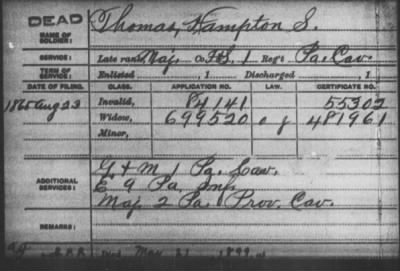 DEAD
NAME OF SOLDIER: Thomas, Hampton S.
SERVICE: Late rank, Maj. Co. F.S., 1 Reg't Pa. Cav.
TERM OF SERVICE: Enlisted , 1 Discharged , 1
DATE OF FILING. CLASS. APPLICATION NO. LAW. CERTIFICATE NO.
1865 Aug 23 Invalid, 84141 55302
Widow, 699520 481961
Minor,
ADDITIONAL SERVICES: G + M 1 Pa. Cav.
E 9 Pa. Inf.
Maj 2 Pa. Prov. Cav.
REMARKS:
May 21 1899